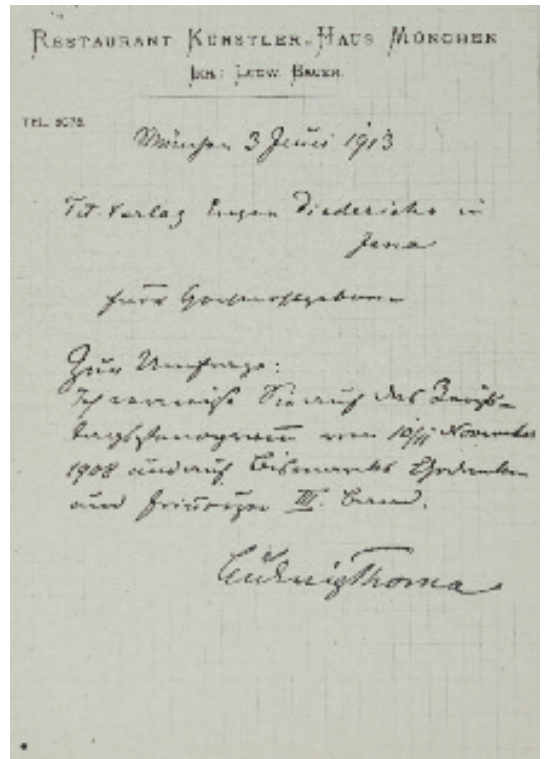 RESTAURANT KÜNSTLER-HAUS MÜNCHEN
INH: LUDW. BAUER.
TEL. 5075.
München 3 Juni 1913
Tit. Verlag Eugen Diederichs in
Jena
Euer Hochwohlgeboren
Zur Umfrage:
Ich verweise Sie auf das Reichs-
tagsstenogramm vom 10/11 November
1908 und auf Bismarcks Gedanken
und Erinnerungen III. Band.
Ludwig Thoma